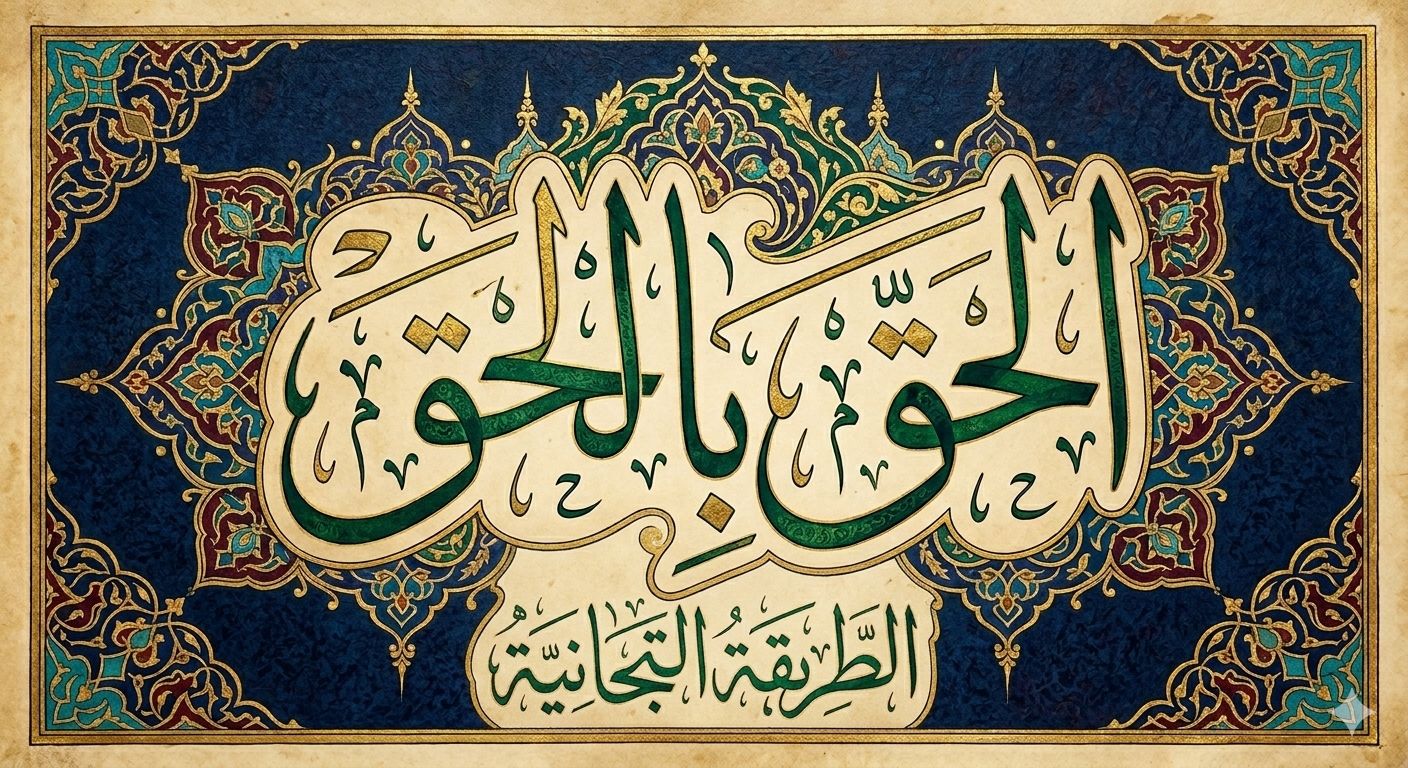 الحقّ بِالحق
الطَّرِيقَةُ التِّجَانِيَّةُ